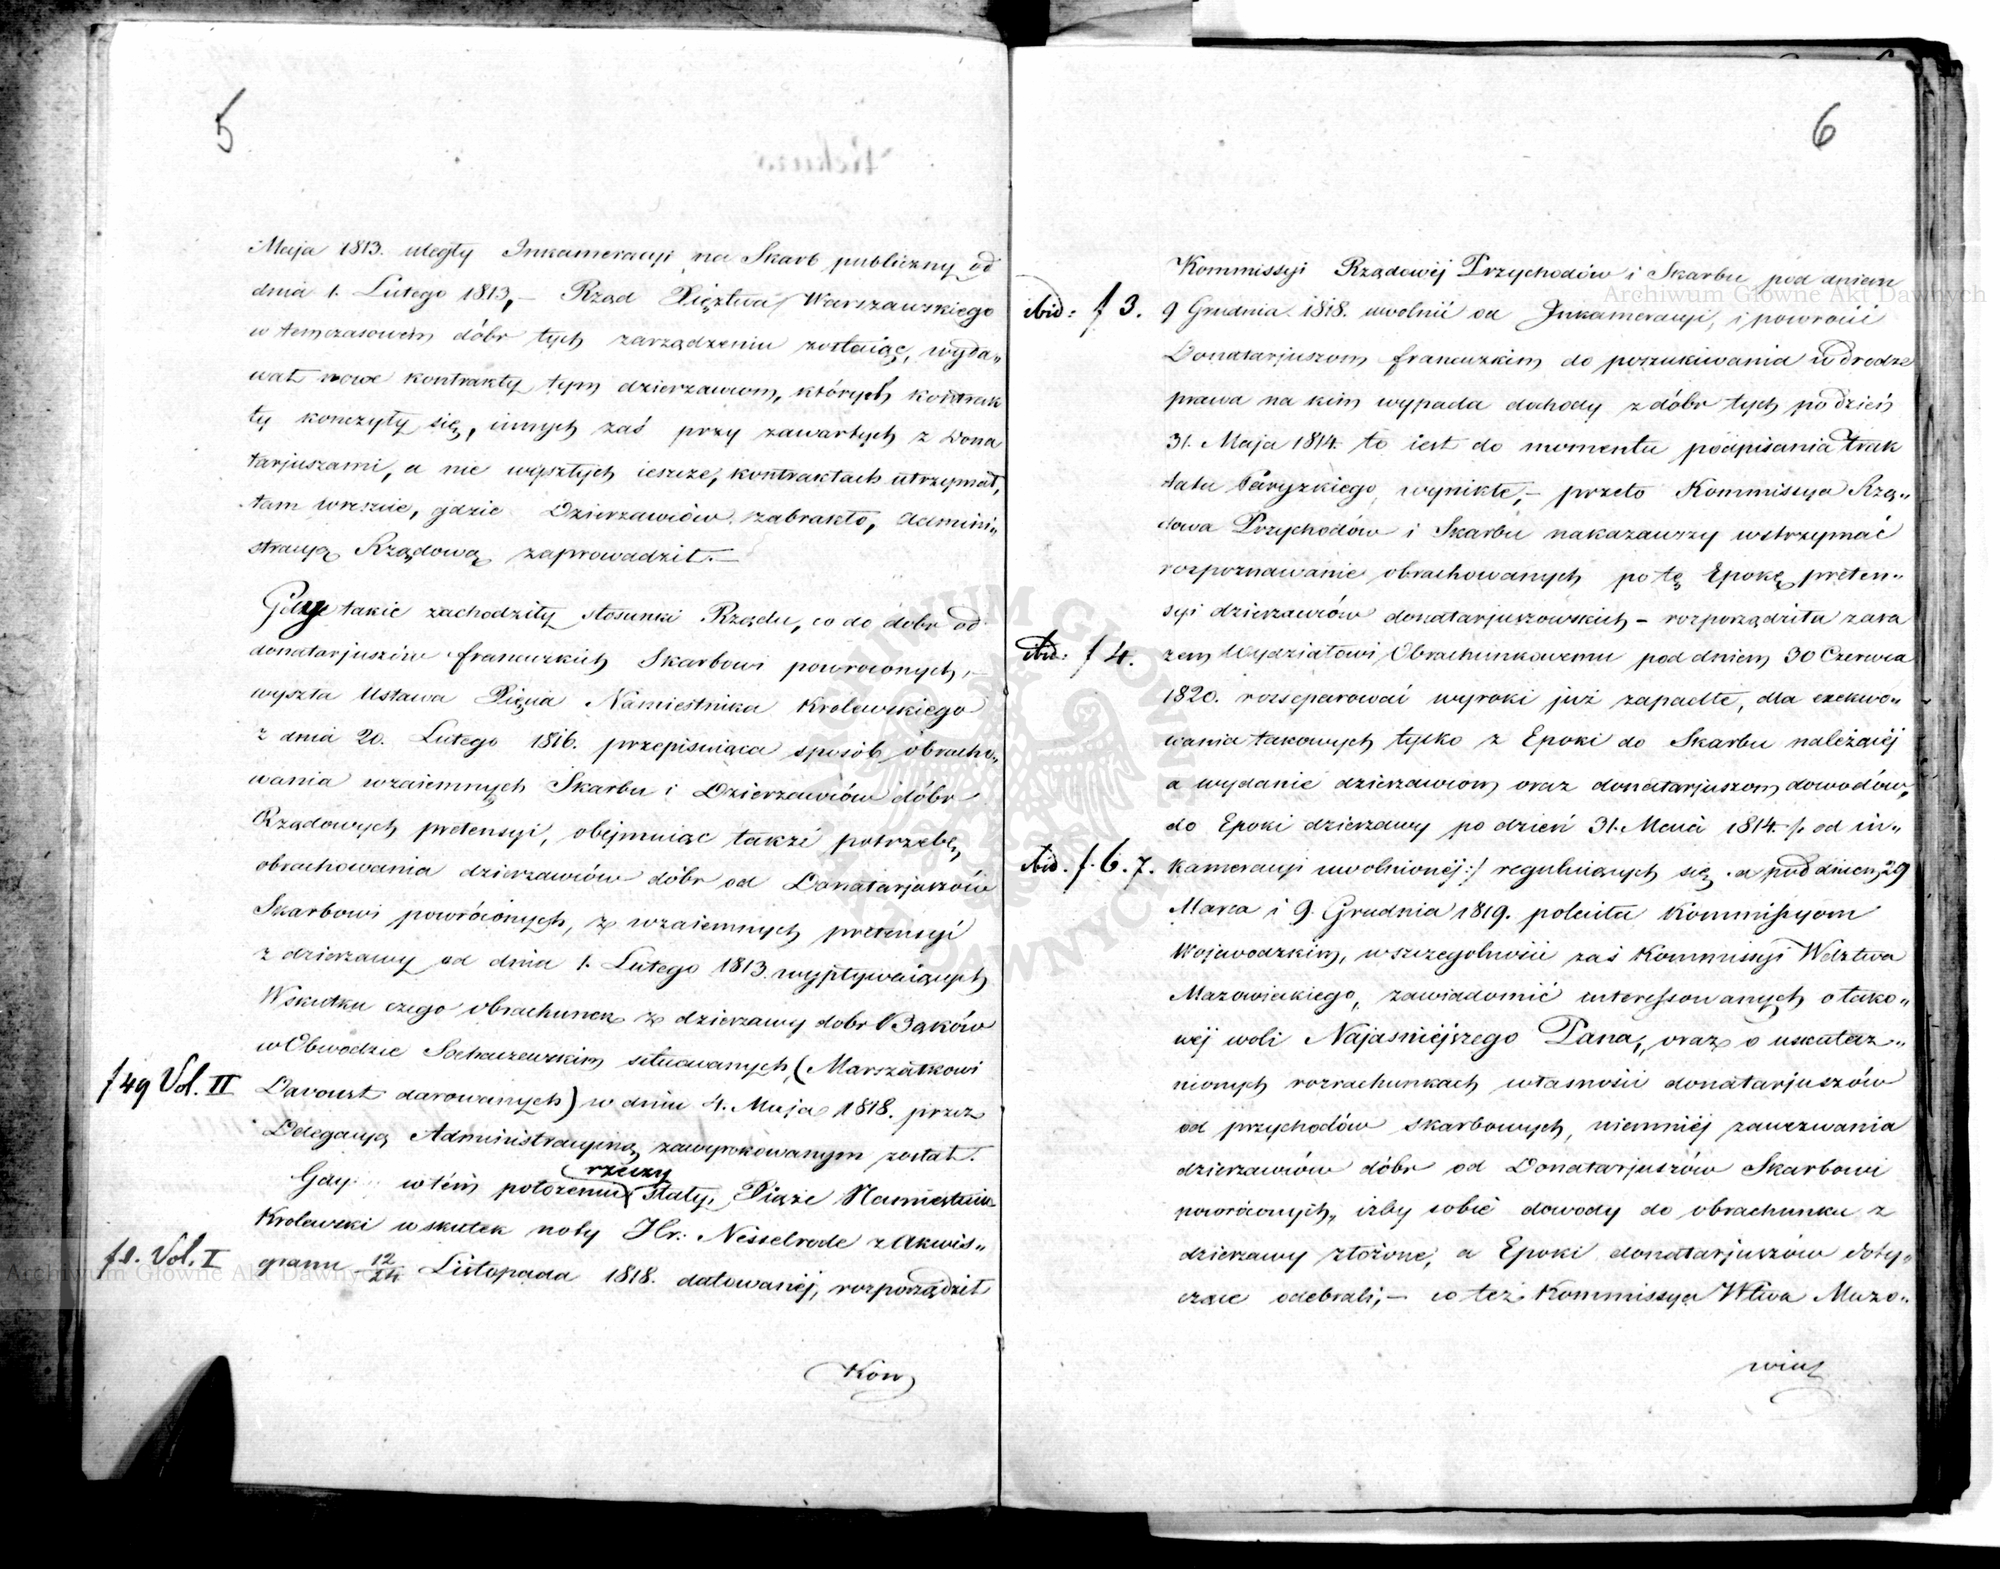 5
Maja 1813. uległy Inkameracyi na Skarb publiczny od
dnia 1. Lutego 1813,– Rząd Xięztwa Warszawskiego
w tymczasowém dóbr tych zarządzeniu zostaiąc, wyda„
wał nowe kontrakty tym dzierzawcom, których kontrak
ty konczyły się, innych zaś przy zawartych z Dona
tarjuszami, a nie wyszłych ieszcze, kontraktach utrzymał,
tam wreszcie, gdzie Dzierzawców zabrakło, Admini„
stracyą Rządową zaprowadził.—
Gdy takie zachodziły stosunki Rządu, co do dóbr od
donatarjuszów francuzkich Skarbowi powróconych,–
wyszła Ustawa Xięcia Namiestnika Krolewskiego
z dnia 20. Lutego 1816. przepisuiąca sposób obracho„
wania wzaiemnych Skarbu i Dzierzawców dóbr
Rządowych pretensyi, obejmuiąc także potrzebę,
obrachowania dzierzawców dóbr od Donatarjuszów
Skarbowi powróconych, z wzaiemnych pretensyi
z dzierzawy od dnia 1. Lutego 1813. wypływaiących
Wskutku czego obrachunek z dzierzawy dobr Bąków
w Obwodzie Sochaczewskim situowanych, (Marszałkowi
f 49 Vol. II Davoust darowanych) w dniu 4. Maja 1818. przez
Delegacyą Administracyiną zawyrokowanym został.
rzeczy
Gdy w tém położeniu stały, Xiąże Namiestnik
Krolewski w skutek noty Hr: Nesselrode z Akwis„
f 2. Vol. I granu 12/24 Listopada 1818. datowanéj, rozporządził
Kom
6
Kommissyi Rządowéj Przychodów i Skarbu pod dniem
ibid: f 3. 9 Grudnia 1818. uwolnić od Inkameracyi, i powrócić
Donatarjuszom francuzkim do poszukiwania w drodze
prawa na kim wypada dochody z dóbr tych po dzień
31. Maja 1814. to iest do momentu podpisania trak
tatu Paryzkiego, wynikłe,– przeto Kommissya Rzą„
dowa Przychodów i Skarbu nakazawszy wstrzymać
rozpoznawanie obrachowanych po tę Epokę preten„
syi dzierzawców donatarjuszowskich – rozporządziła zara
ibid: f 4. zem Wydziałowi Obrachunkowemu pod dniem 30 Czerwca
1820. rozseparować wyroki już zapadłe, dla exekwo„
wania takowych tylko z Epoki do Skarbu należącéj
a wydanie dzierzawcom oraz donatarjuszom dowodów,
do Epoki dzierzawy po dzień 31. Maia 1814. /: od in„
ibid. f. 6. 7. kameracyi uwolnionéj :/ reguluiących się. a pod dniem 29
Marca i 9. Grudnia 1819. poleciła Kommissyom
Wojewodzkim, w szczegolności zaś Kommissyi Wdztwa
Mazowieckiego, zawiadomić interessowanych o tako„
wéj woli Najasniéjszego Pana, oraz o uskutecz„
nionych rozrachunkach własności donatarjuszów
od przychodów skarbowych, niemniéj zawezwania
dzierzawców dóbr od Donatarjuszów Skarbowi
powróconych, iżby sobie dowody do obrachunku z
dzierzawy złożone, a Epoki donatarjuszów doty„
czące odebrali,– co też Kommissya Wtwa Mazo„
wiec
Archiwum Główne Akt Dawnych
Archiwum Główne Akt Dawnych
ARCHIWUM GŁÓWNE AKT DAWNYCH